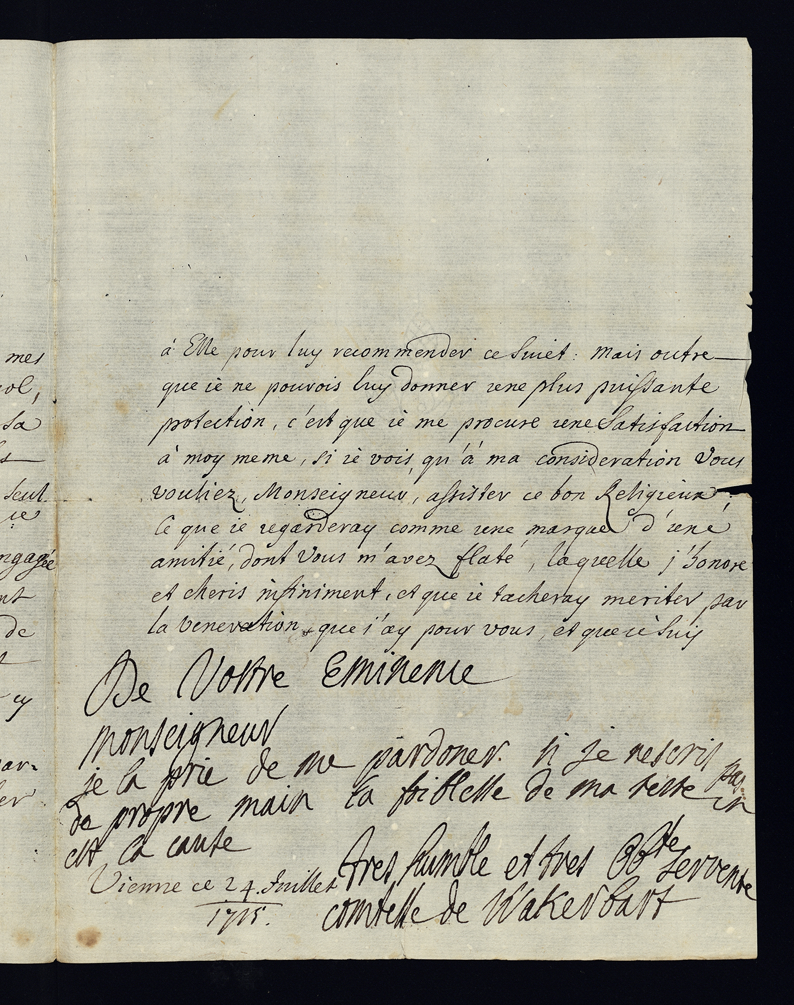 mes
sa
seul
ie
engagée
nt
de
cy
par-
à Elle pour luy recommender ce suiet: mais outre
que ie ne pouvois luy donner une plus puissante
protection, c'est que ie me procure une satisfaction
à moy meme, si ie vois, qu'à ma consideration vous
vouliez, Monseigneur, assister ce bon Religieux
ce que ie regarderay comme une marque d'une
amitié, dont vous m'avez flaté, laquelle j'honore
et cheris infiniment, et que ie tacheray meriter par
la veneration, que j'ay pour vous, et que ie suis
De Vostre Eminence
monseigneur
je la prie de me pardoner si je nescris pas
de propre main la foiblesse de ma teste en
est la cause
Vienne ce 24 Juillet
1715.
tres humble et tres Obte servente
comtesse de Wakerbart